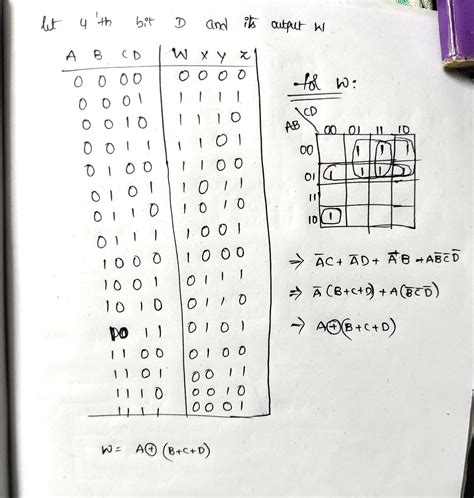 let 4'th bit D and its output W
A B C D W X Y Z
0 0 0 0 0 0 0 0
0 0 0 1 1 1 1 1
0 0 1 0 1 1 1 0
0 0 1 1 1 1 0 1
0 1 0 0 1 1 0 0
0 1 0 1 1 0 1 1
0 1 1 0 1 0 1 0
0 1 1 1 1 0 0 1
1 0 0 0 1 0 0 0
1 0 0 1 0 1 1 1
1 0 1 0 0 1 1 0
1 0 1 1 0 1 0 1
1 1 0 0 0 1 0 0
1 1 0 1 0 0 1 1
1 1 1 0 0 0 1 0
1 1 1 1 0 0 0 1
W = A⊕(B+C+D)
for W:
CD
AB 00 01 11 10
00 1 1 1
01 1 1 1 1
11
10 1
⇒ A̅C + A̅D + A̅B + AB̅C̅D̅
⇒ A̅(B+C+D) + A(B̅C̅D̅)
→ A⊕(B+C+D)